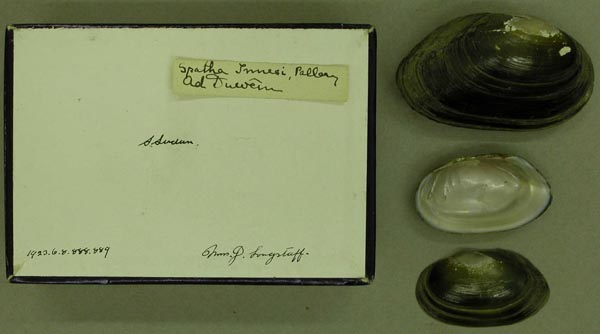 Spatha Innesi, Pallary
Ad Duwêm
S. Sudan.
1923.6.8.888.889
Mrs. J. Longstaff.